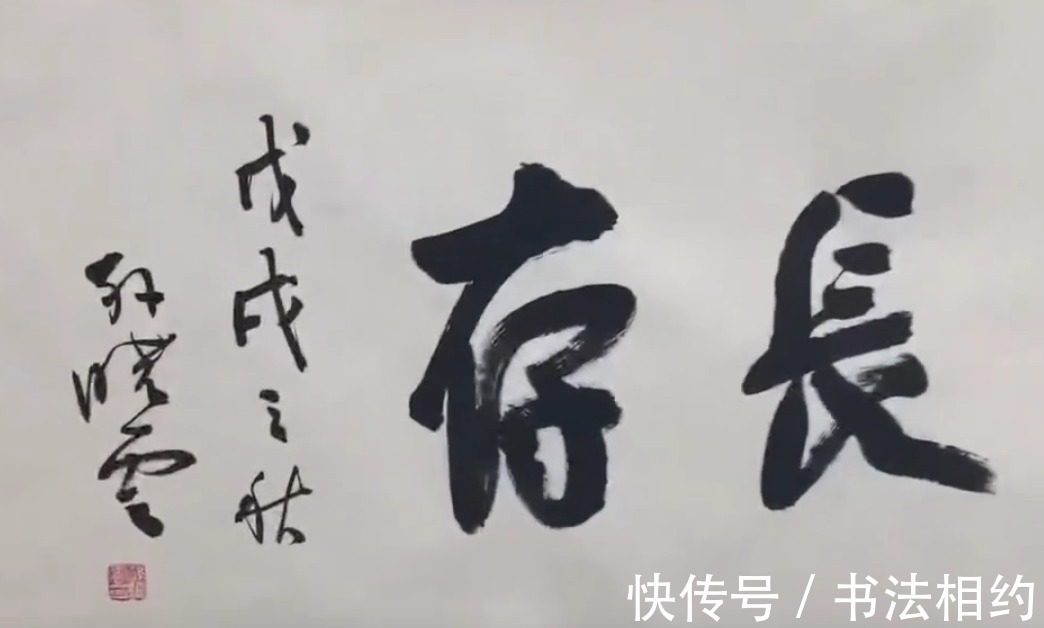 長存
戊戌之秋
孙晓雲
快传号 / 书法相约